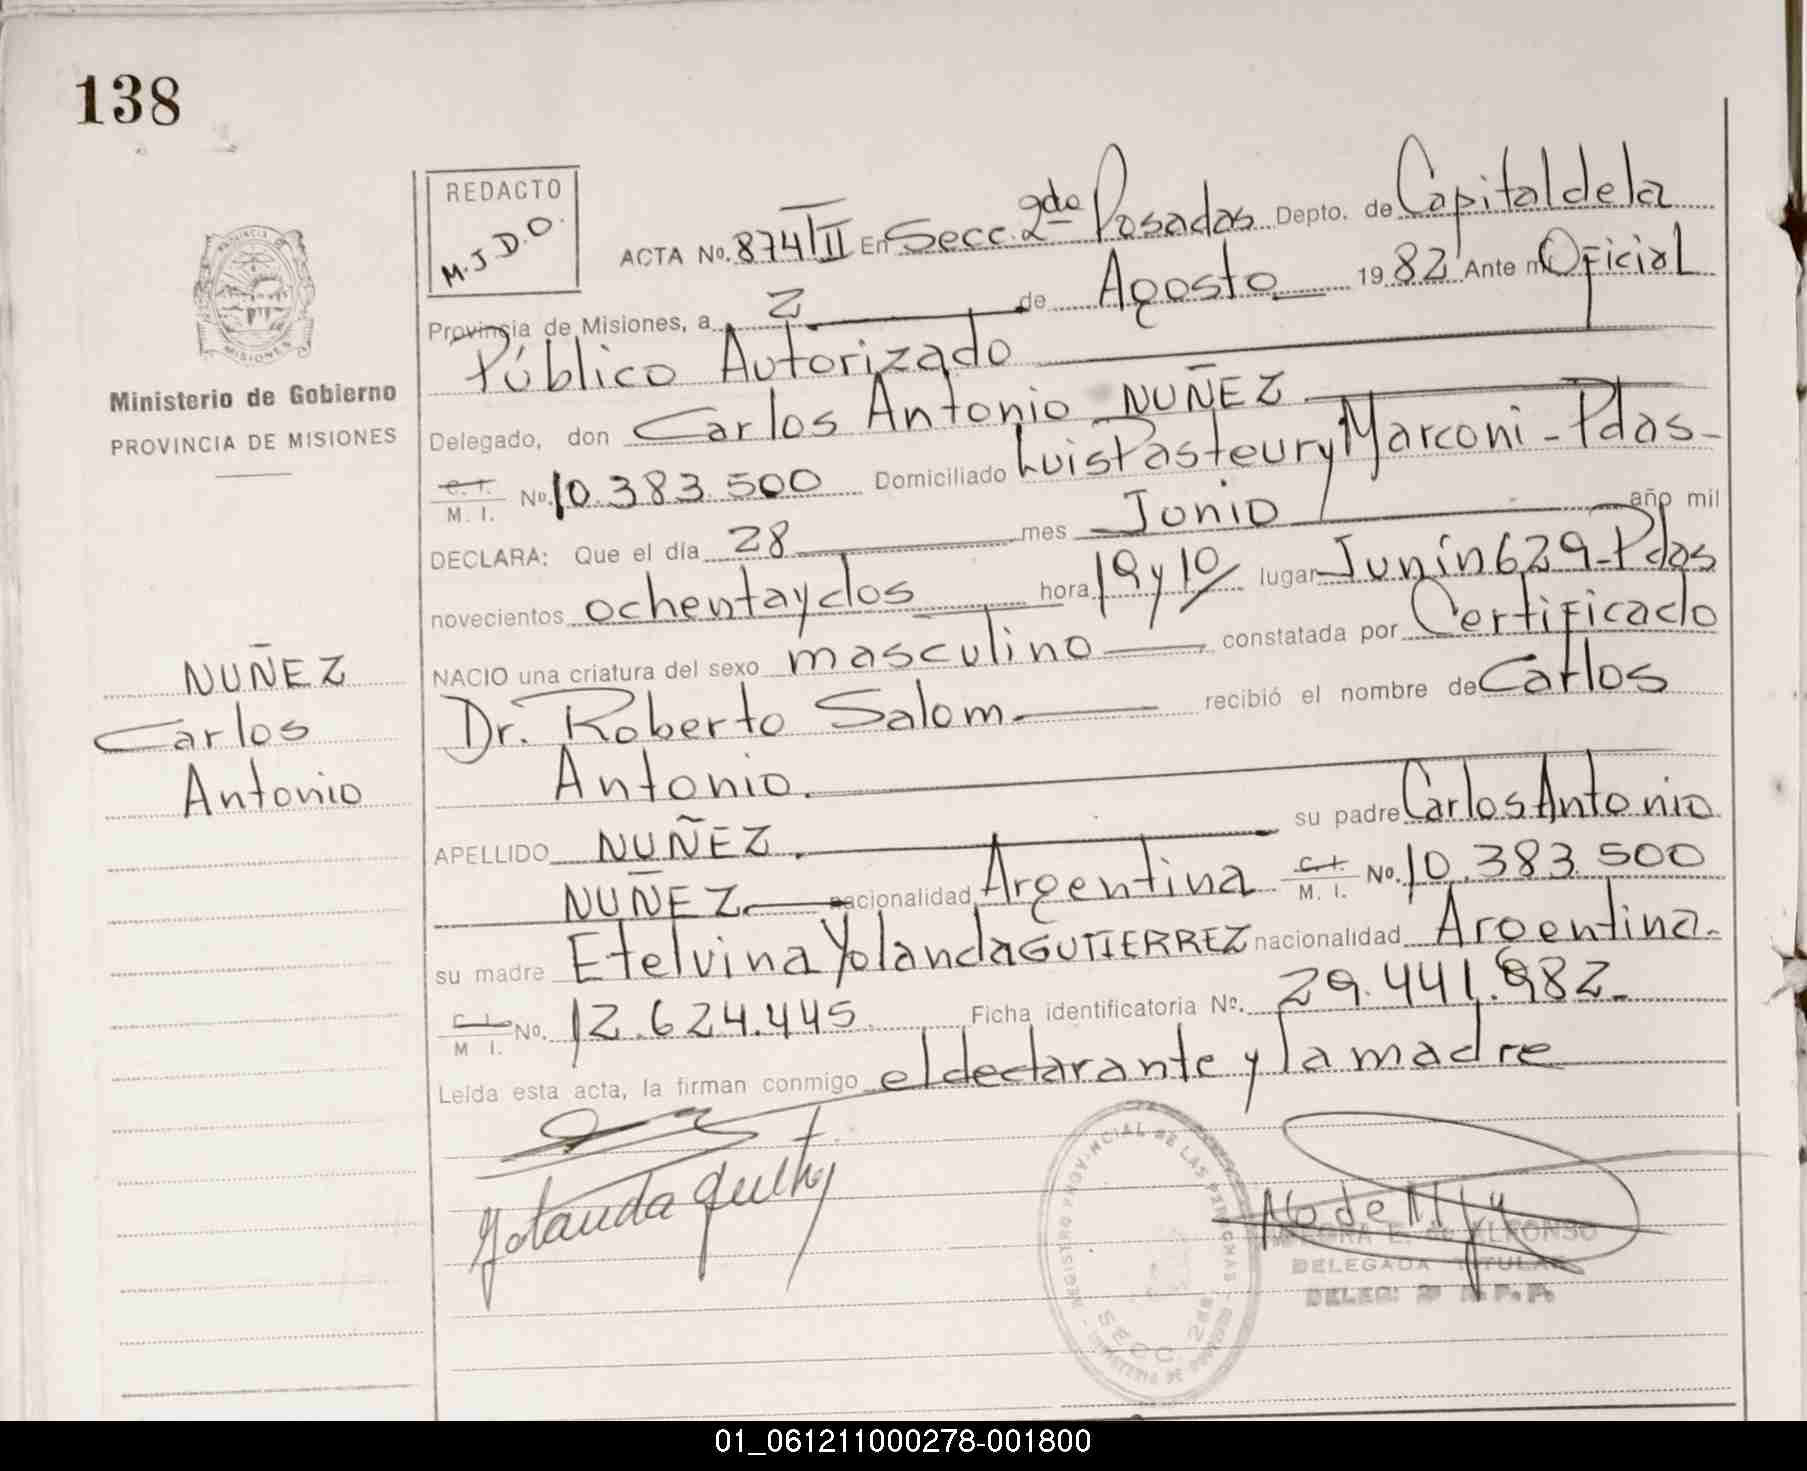 138
REDACTO
M.J.D.O.
ACTA No. 874/II En Secc. 2da Posadas Depto. de Capital de la
Provincia de Misiones, a 2 de Agosto 1982 Ante mí Oficial
Público Autorizado
Ministerio de Gobierno
PROVINCIA DE MISIONES
Delegado, don Carlos Antonio NUÑEZ
C. I. M. I. No. 10.383.500 Domiciliado Luis Pasteur y Marconi - Pdas -
DECLARA: Que el día 28 mes Junio año mil
novecientos ochenta y dos hora 19 y 10 lugar Junín 629 - Pdas
NACIO una criatura del sexo masculino constatada por Certificado
Dr. Roberto Salom recibió el nombre de Carlos
Antonio.
NUÑEZ
Carlos
Antonio
APELLIDO NUÑEZ. su padre Carlos Antonio
NUÑEZ nacionalidad Argentina C. I. M. I. No. 10.383.500
su madre Etelvina Yolanda GUTIERREZ nacionalidad Argentina.
C. I. M I. No. 12.624.445 Ficha identificatoria Nº. 29.441.982-
Leída esta acta, la firman conmigo el declarante y la madre
REGISTRO PROVINCIAL DE LAS PERSONAS
SECC. 2da
DE ALFONSO
DELEGADA TITULAR
DELEG. 2ª R.P.P.
01_061211000278-001800